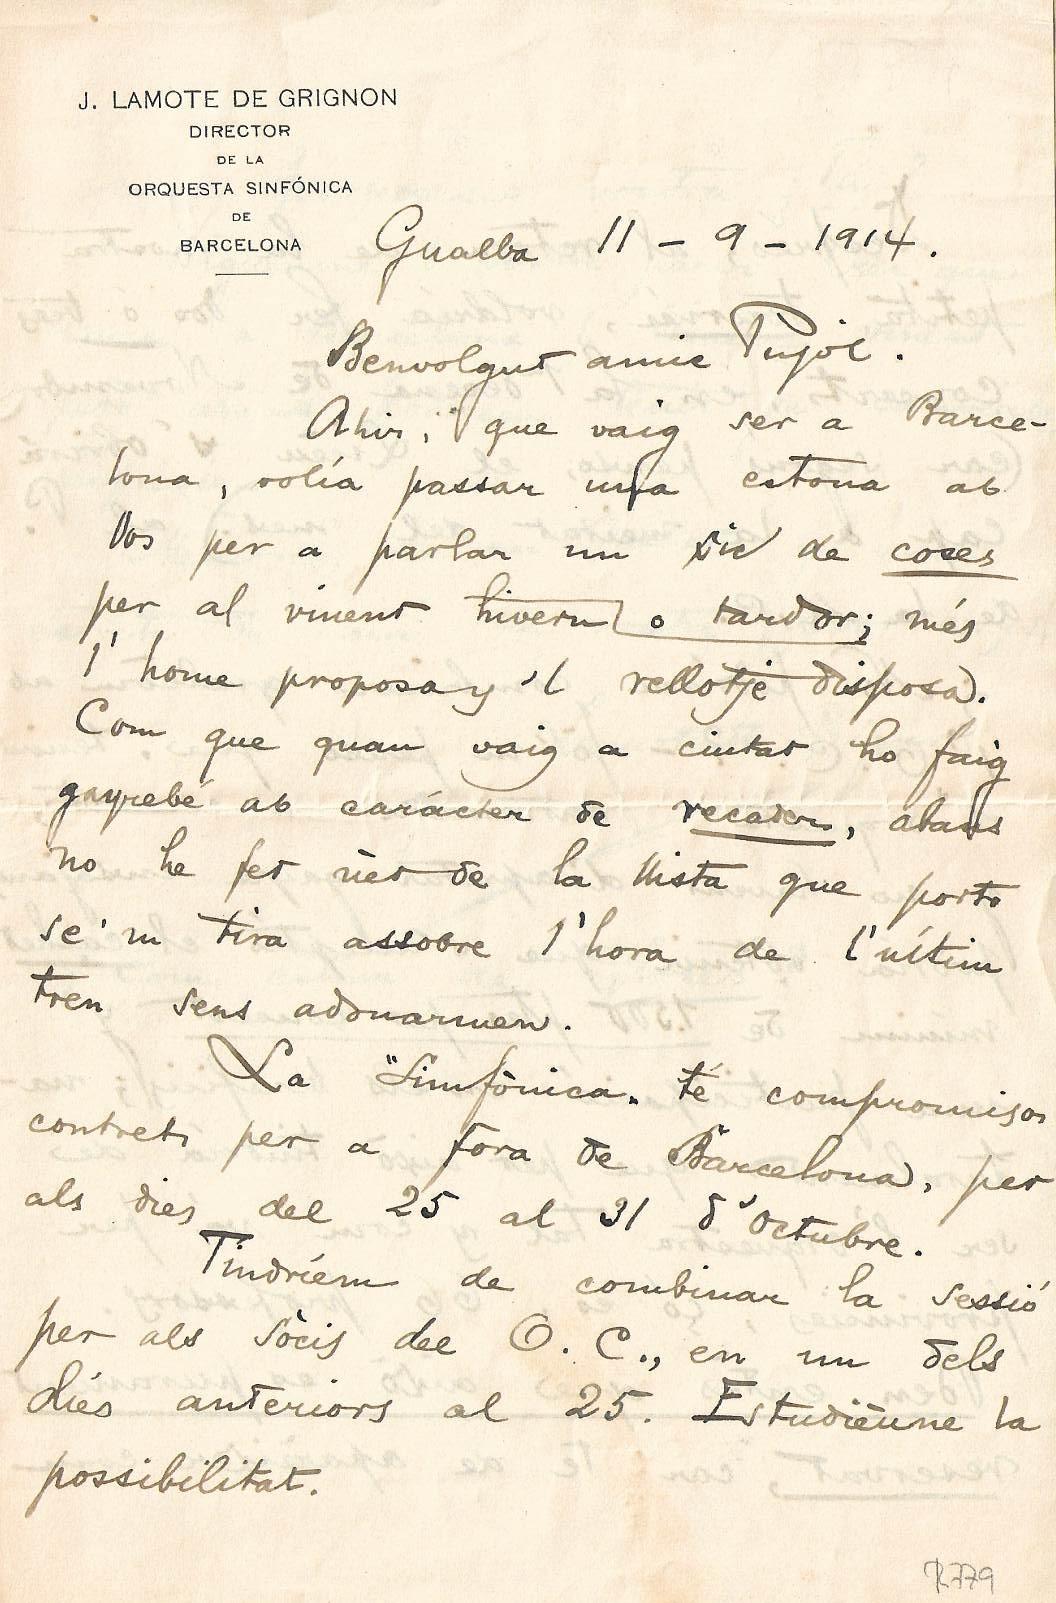 J. LAMOTE DE GRIGNON
DIRECTOR
DE LA
ORQUESTA SINFÓNICA
DE
BARCELONA
Gualba 11 - 9 - 1914.
Benvolgut amic Pujol.
Ahir, que vaig ser a Barce-
lona, volía passar una estona ab
Vos per a parlar un xic de coses
per al vinent hivern o tardor; més
l'home proposa y 'l rellotje disposa.
Com que quan vaig a ciutat ho faig
gayrebé ab carácter de recader, abans
no he fet nèt de la llista que porto
se'm tira assobre l'hora de l'ultim
tren sens adonarmen.
La "Simfònica" té compromisos
contrets per a fora de Barcelona, per
als dies del 25 al 31 d'Octubre.
Tindríem de combinar la sessió
per als sòcis del O. C., en un dels
díes anteriors al 25. Estudièune la
possibilitat.
R.779